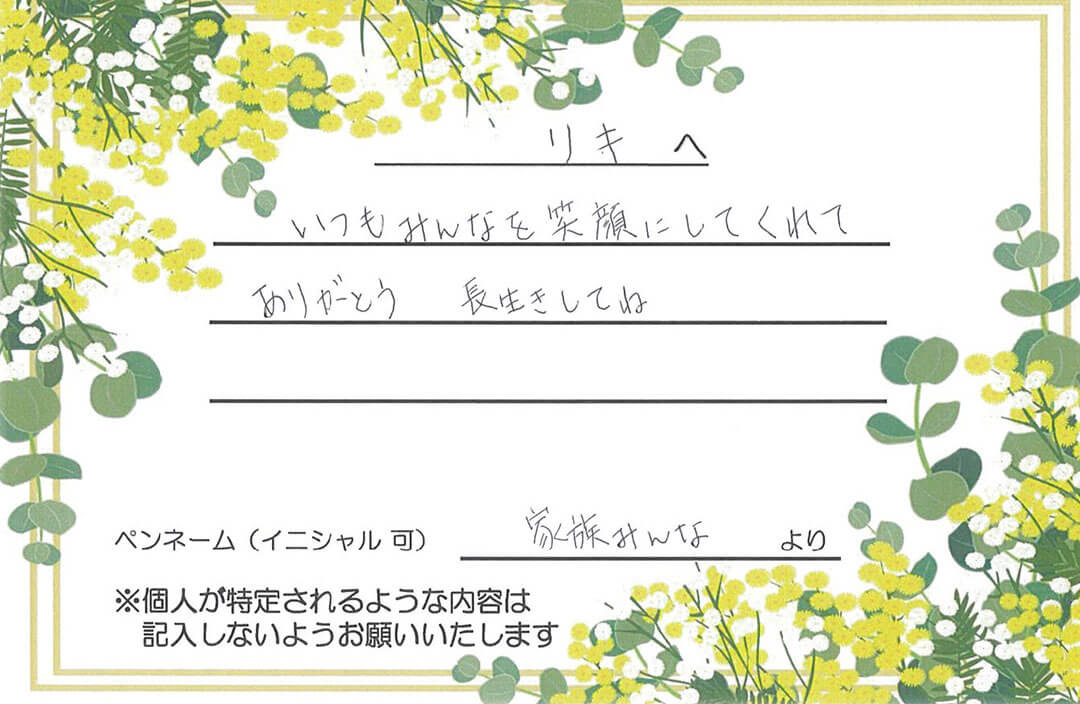 リキ へ
いつもみんなを笑顔にしてくれて
ありがとう 長生きしてね
ペンネーム（イニシャル 可） 家族みんな より
※個人が特定されるような内容は
記入しないようお願いいたします